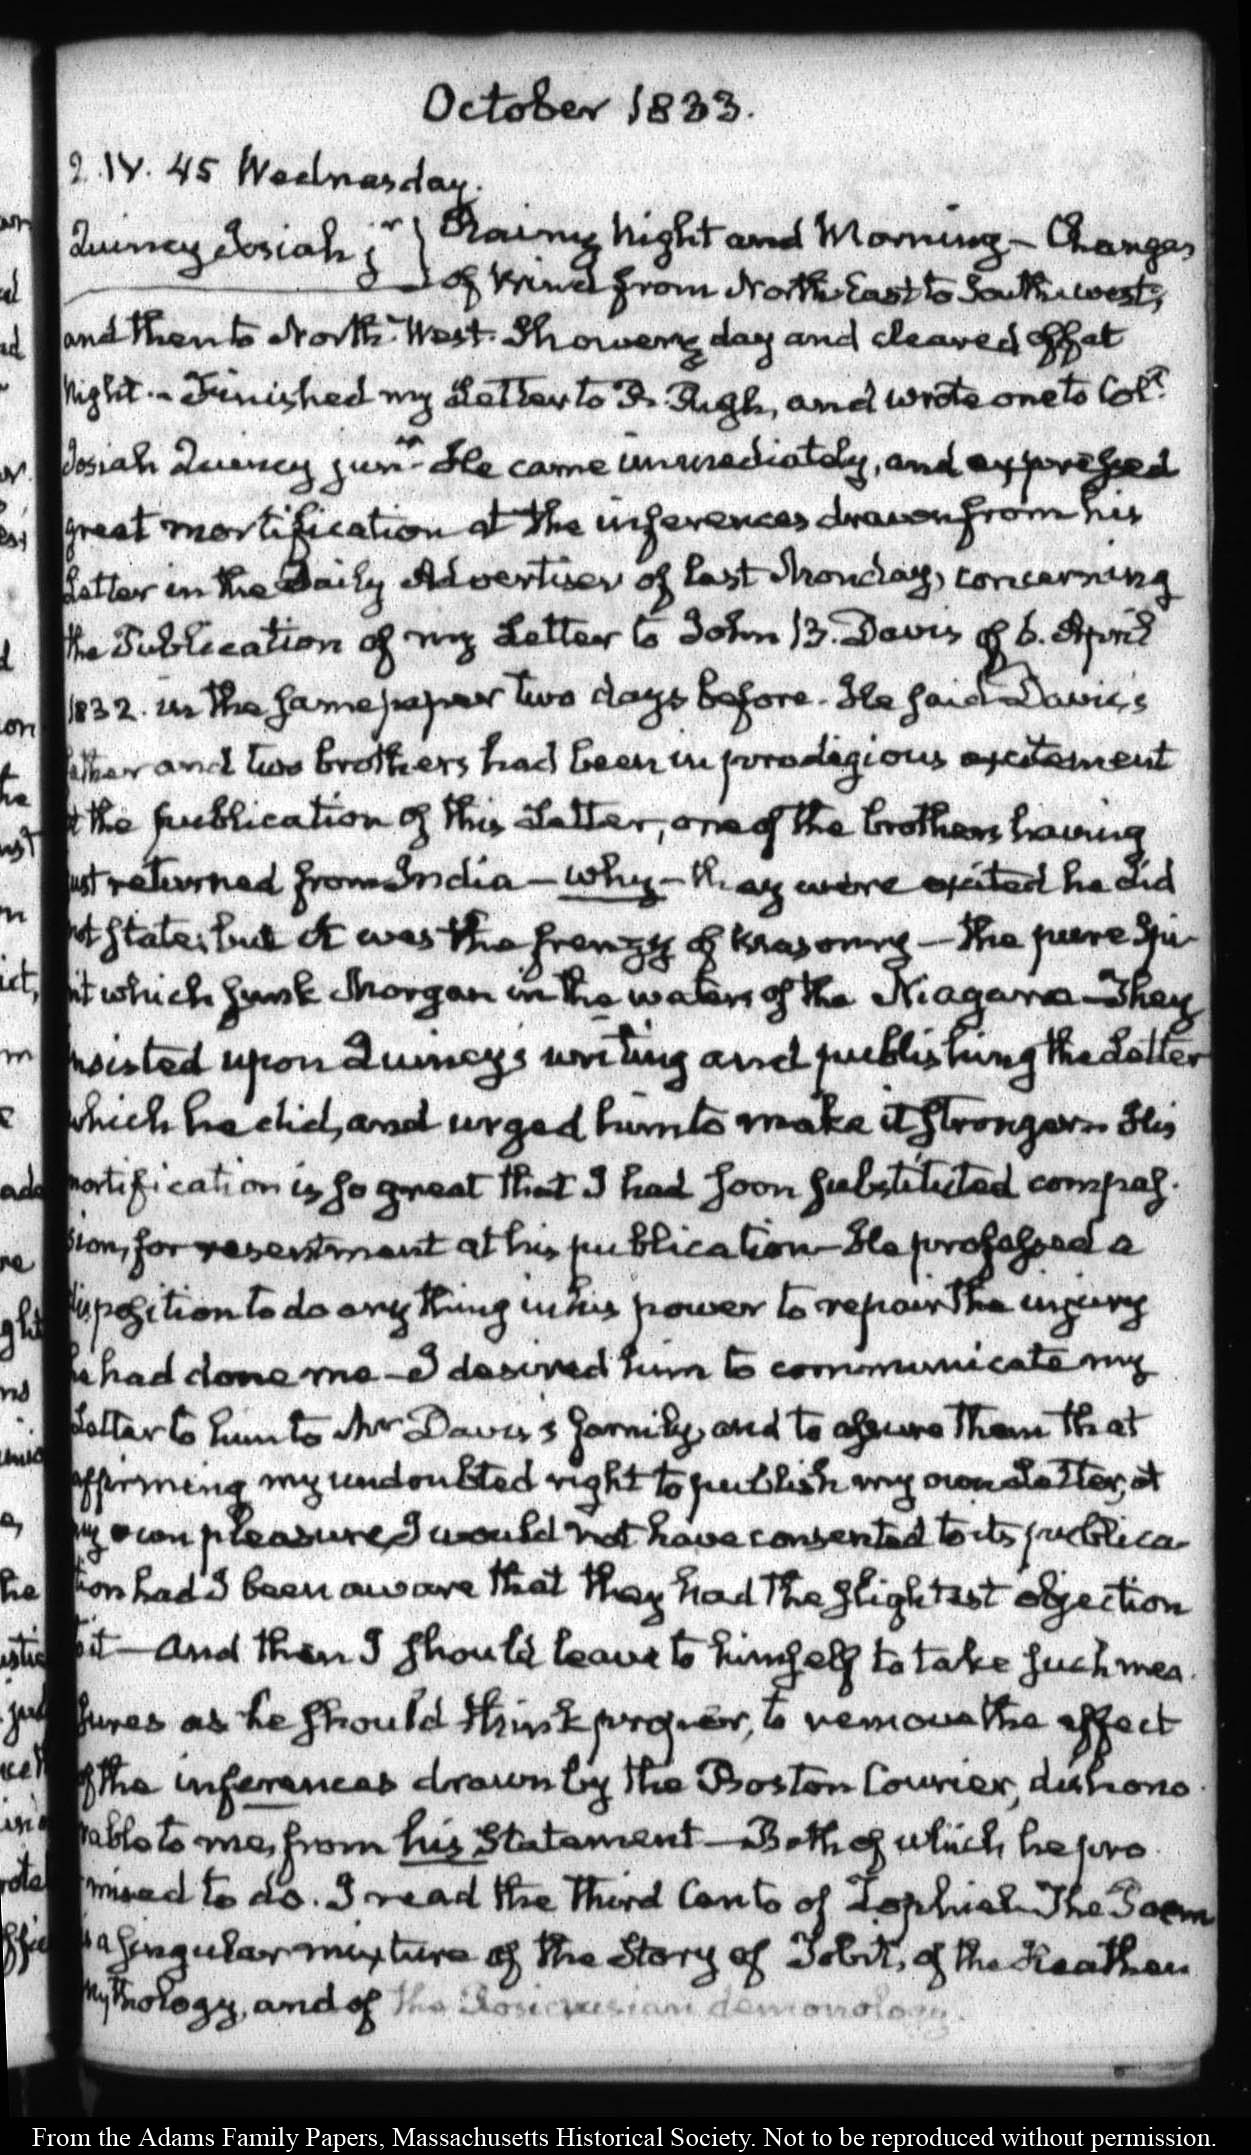 October 1833.
2. IV. 45 Wednesday.
Quincy Josiah jr } Rainy Night and Morning – Changes
of Wind from North East to South west,
and then to North-West. Showery day and cleared off at
Night. – Finished my Letter to B. Pugh, and wrote one to Coll.
Josiah Quincy junr. He came immediately, and expressed
great mortification at the inferences drawn from his
Letter in the Daily Advertiser of last Monday, concerning
the Publication of my Letter to John B. Davis of 6. April
1832. in the same paper two days before. He said Davis's
father and two brothers had been in prodigious excitement
at the publication of this Letter, one of the brothers having
just returned from India – why – they were excited he did
not state; but it was the frenzy of Masonry – the pure Spi-
rit which sunk Morgan in the waters of the Niagara – They
insisted upon Quincy's writing and publishing the Letter
which he did, and urged him to make it stronger. His
mortification is so great that I had soon substituted compas-
sion, for resentment at his publication – He professed a
disposition to do any thing in his power to repair the injury
he had done me – I desired him to communicate my
Letter to him to Mr Davis's family, and to assure them that
affirming my undoubted right to publish my own Letter, at
my own pleasure, I would not have consented to its publica-
tion had I been aware that they had the slightest objection
to it – And then I should leave to himself to take such mea-
sures as he should think proper, to remove the effect
of the inferences drawn by the Boston Courier, dishono-
rable to me, from his Statement – Both of which he pro-
mised to do. I read the third Canto of Zophiel – The Poem
is a singular mixture of the Story of Tobit, of the Heathen
Mythology, and of the Rosicrusian demonology.
From the Adams Family Papers, Massachusetts Historical Society. Not to be reproduced without permission.